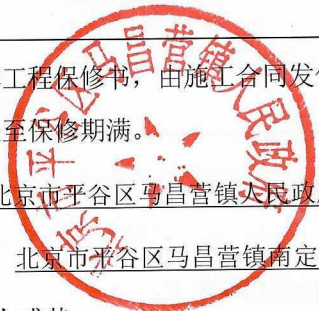 工程保修书，由施工合同发
至保修期满。
北京市平谷区马昌营镇人民政
北京市平谷区马昌营镇南定
北京市平谷区马昌营镇人民政府